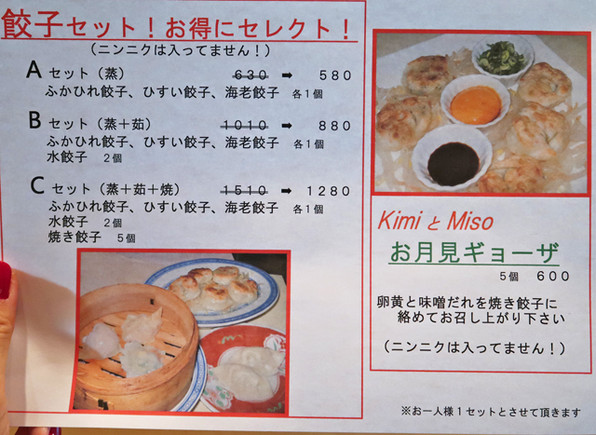 餃子セット！お得にセレクト！
（ニンニクは入ってません！）
A セット（蒸） 630 ➡ 580
ふかひれ餃子、ひすい餃子、海老餃子 各1個
B セット（蒸＋茹） 1010 ➡ 880
ふかひれ餃子、ひすい餃子、海老餃子 各1個
水餃子 2個
C セット（蒸＋茹＋焼） 1510 ➡ 1280
ふかひれ餃子、ひすい餃子、海老餃子 各1個
水餃子 2個
焼き餃子 5個
Kimi と Miso
お月見ギョーザ
5個 600
卵黄と味噌だれを焼き餃子に
絡めてお召し上がり下さい
（ニンニクは入ってません！）
※お一人様１セットとさせて頂きます